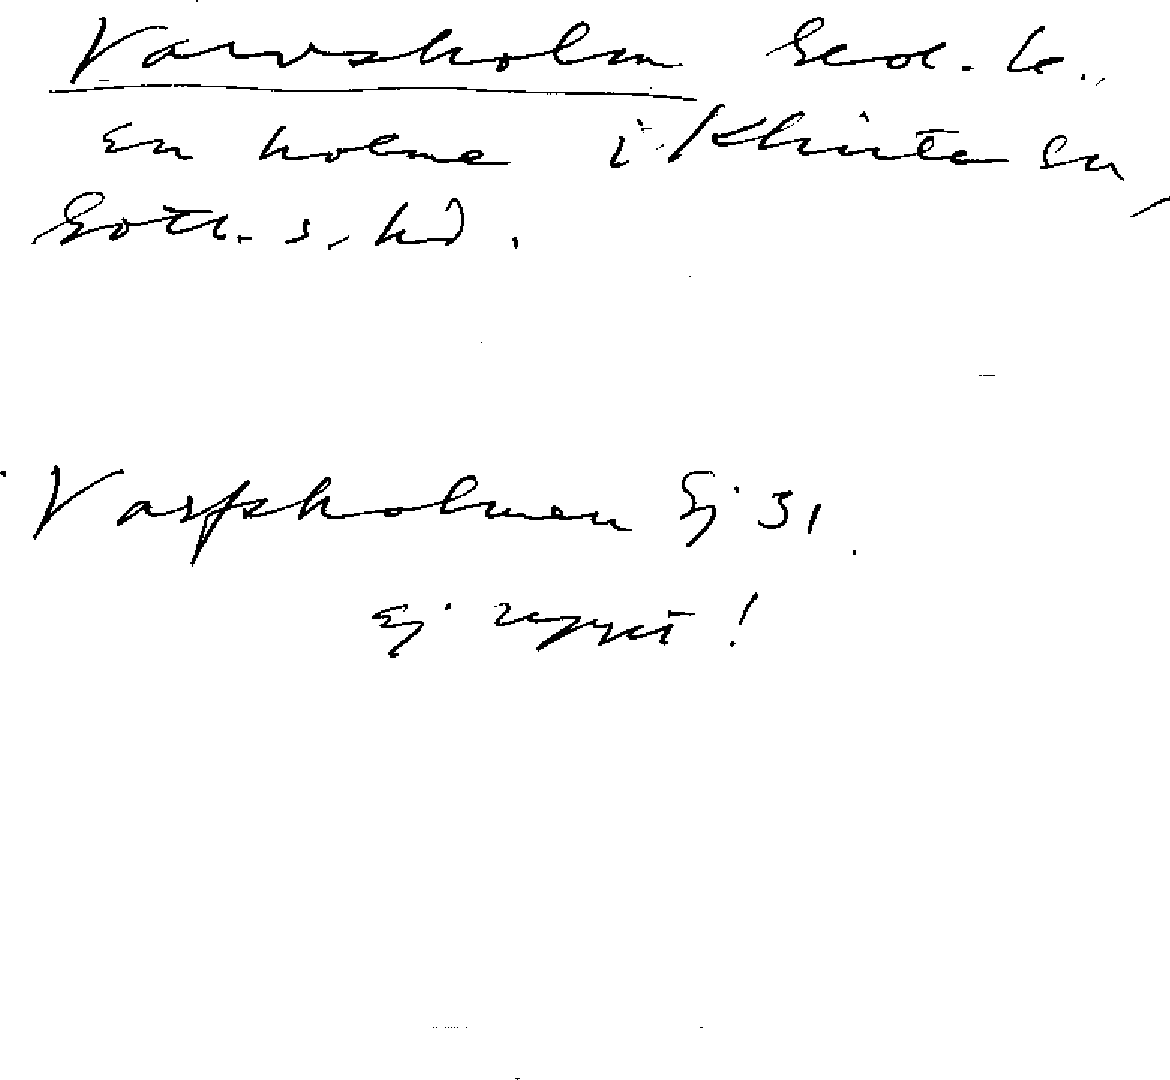 Varvsholm Geol. k.,
en holme i Klinte sn,
Gotl. s. hd.
Varfsholmen Ej 31
Ej uppt!